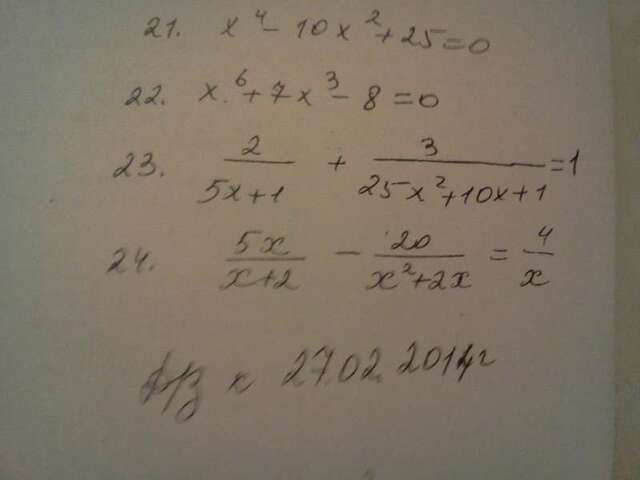 21. x⁴ - 10x² + 25 = 0
22. x⁶ + 7x³ - 8 = 0
23. 2/(5x+1) + 3/(25x²+10x+1) = 1
24. 5x/(x+2) - 20/(x²+2x) = 4/x
Д/З к 27.02 2014г